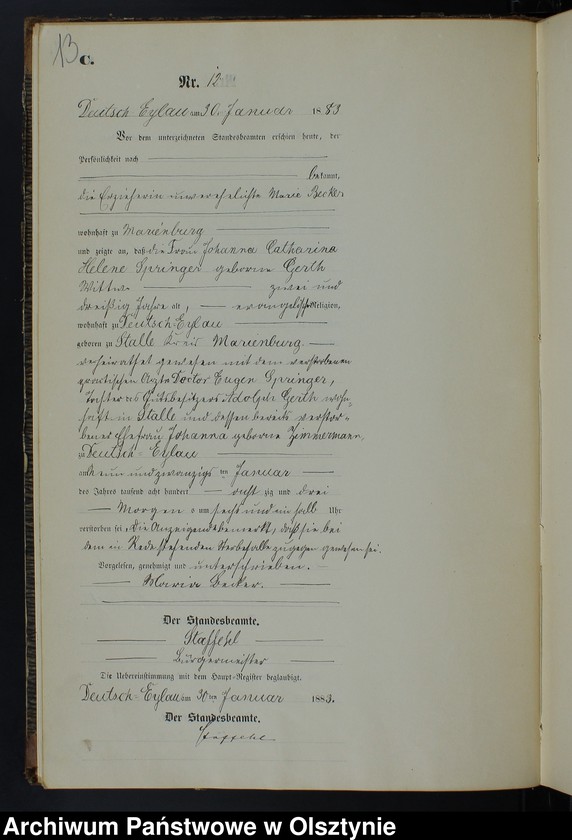 13
C.
Nr. 12
Deutsch Eylau am 30. Januar 1883
Vor dem unterzeichneten Standesbeamten erschien heute, der
Persönlichkeit nach
bekannt,
die Erzieherin unverehelichte Marie Becker
wohnhaft zu Marienburg
und zeigte an, daß die Frau Johanna Catharina
Helene Springer geborne Gerth
Wittwe zwei und
dreißig Jahre alt, evangelischer Religion,
wohnhaft zu Deutsch-Eylau
geboren zu Stalle Kreis Marienburg.
verheirathet gewesen mit dem verstorbenen
practischen Arzte Doctor Eugen Springer,
Tochter des Gutsbesitzers Adolph Gerth wohn-
haft in Stalle und dessen bereits verstor-
bener Ehefrau Johanna geborne Zimmermann,
zu Deutsch-Eylau
am Neun und zwanzigsten Januar
des Jahres tausend acht hundert achtzig und drei
Morgens um sechs und ein halb Uhr
verstorben sei, die Anzeigende bemerkt, daß sie bei
dem in Rede stehenden Sterbefalle zugegen gewesen sei.
Vorgelesen, genehmigt und unterschrieben.
Maria Becker.
Der Standesbeamte.
Staffehl
Bürgermeister
Die Uebereinstimmung mit dem Haupt-Register beglaubigt.
Deutsch-Eylau am 30ten Januar 1883.
Der Standesbeamte.
Staffehl
Archiwum Państwowe w Olsztynie